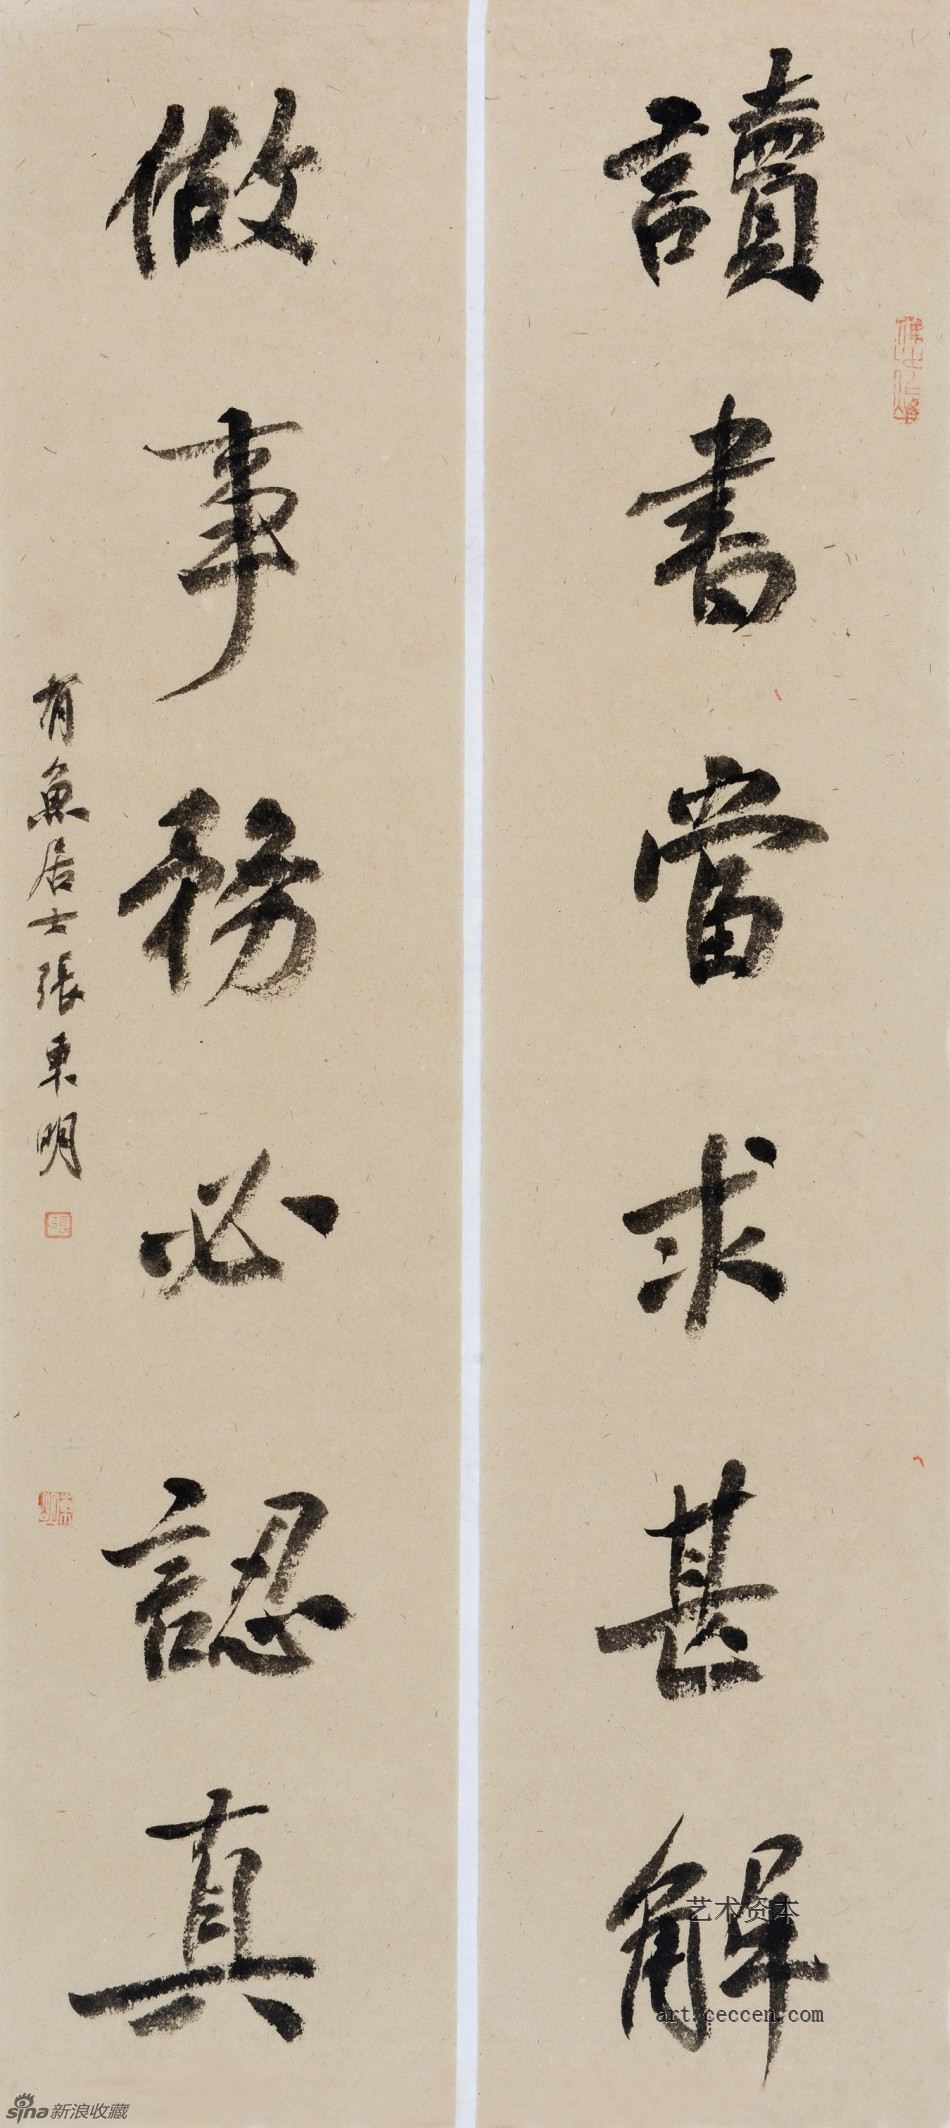 讀書當求甚解
做事務必認真
有魚居士張東明
艺术资本
art.ceccen.com
sina新浪收藏